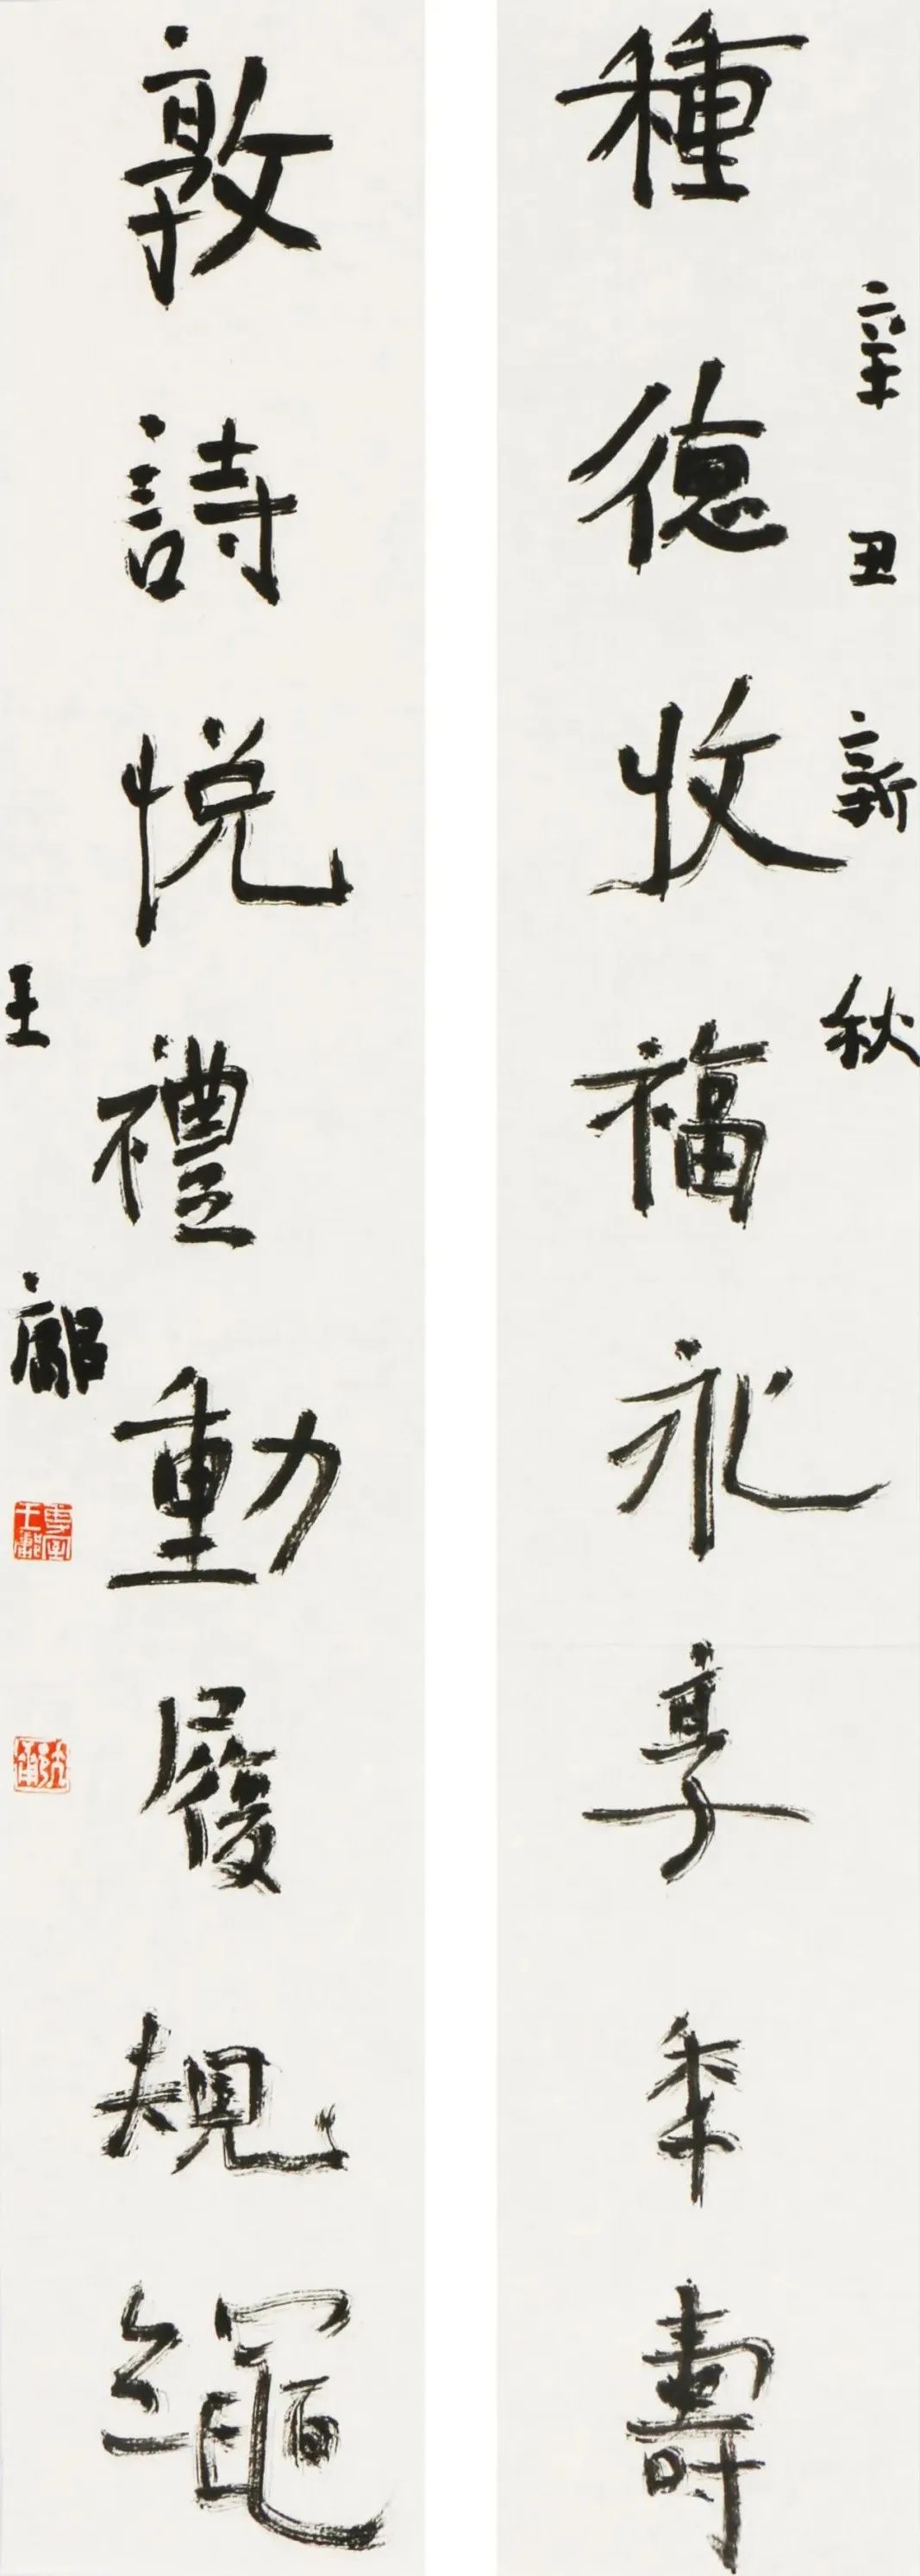 辛丑新秋
種德收福永享年壽
敦詩悅禮動履規繩
王鄘